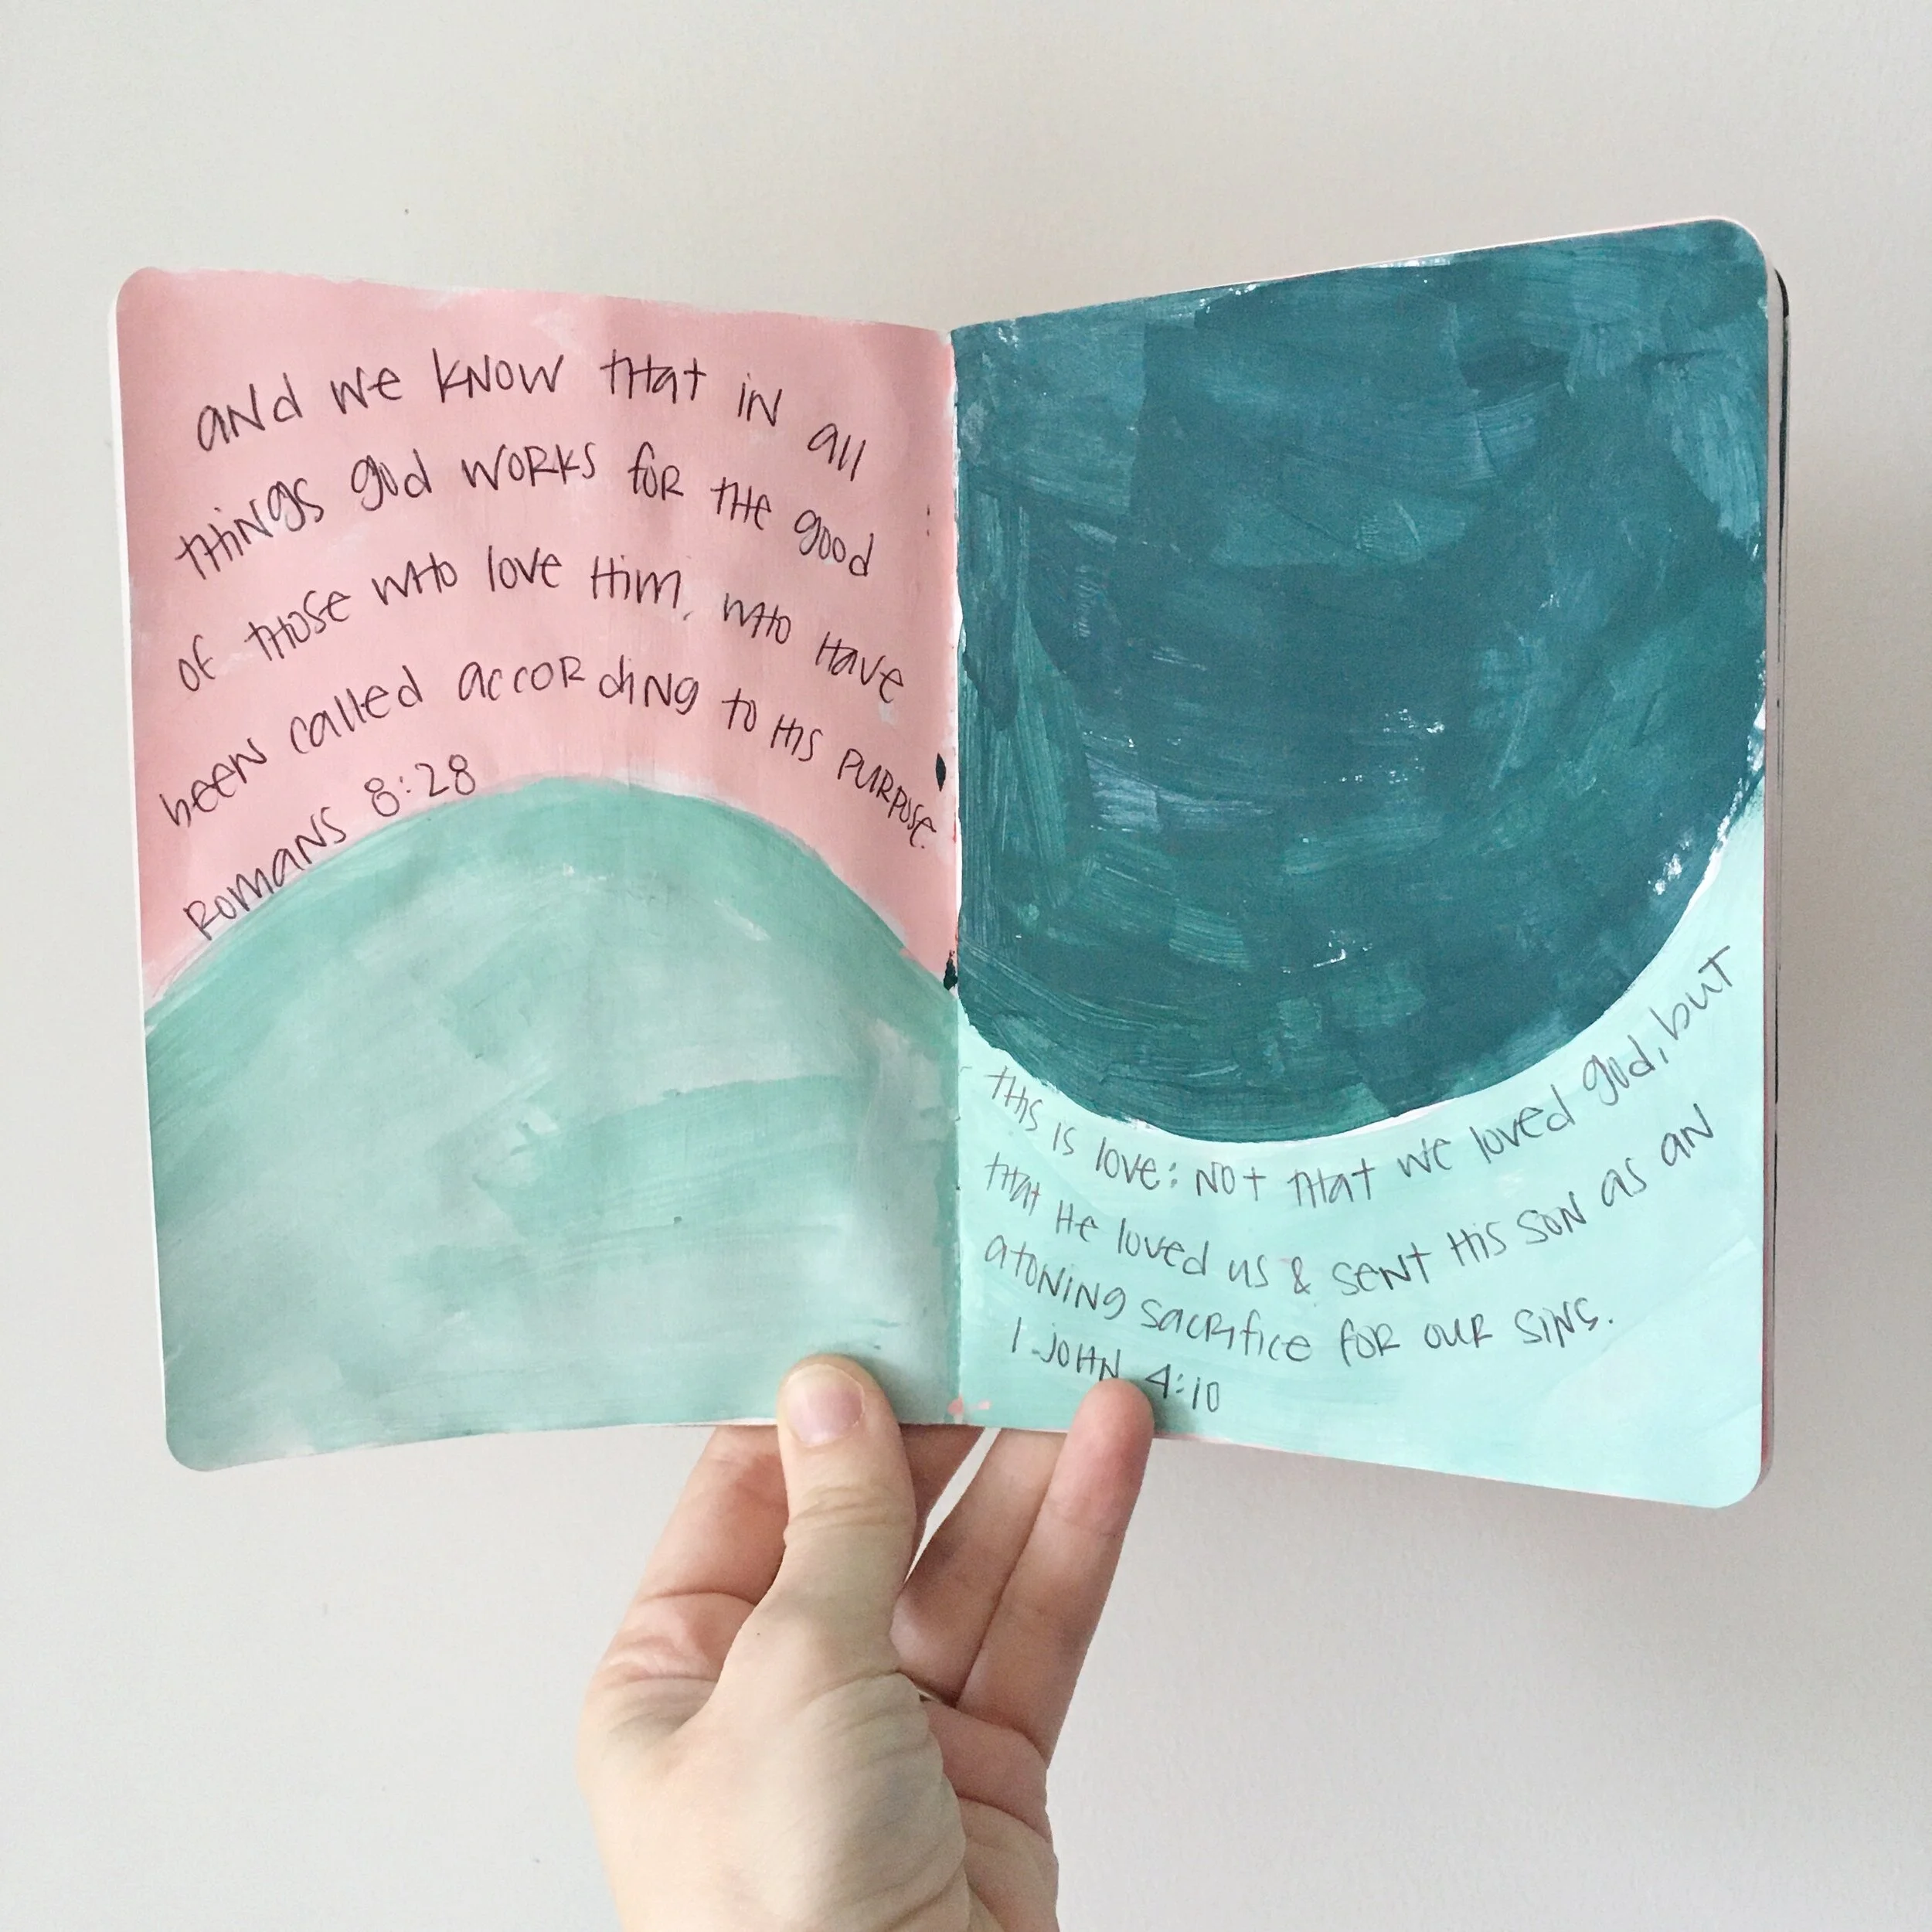 and we know that in all
things god works for the good
of those who love Him, who have
been called according to His purpose.
Romans 8:28
this is love: not that we loved god, but
that He loved us & sent His son as an
atoning sacrifice for our sins.
1 John 4:10